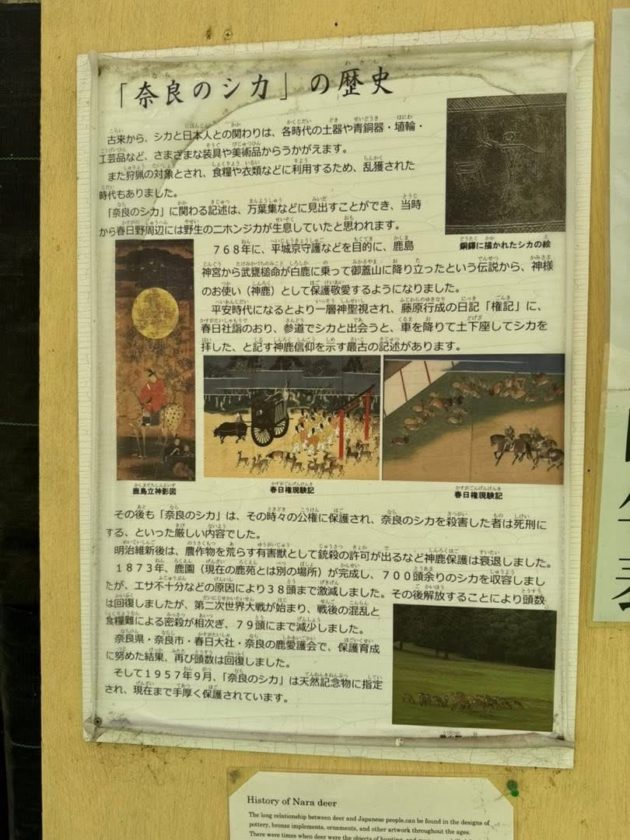 「奈良のシカ」の歴史
古来から、シカと日本人との関わりは、各時代の土器や青銅器・埴輪・
工芸品など、さまざまな装具や美術品からうかがえます。
また狩猟の対象とされ、食糧や衣類などに利用するため、乱獲された
時代もありました。
「奈良のシカ」に関わる記述は、万葉集などに見出すことができ、当時
から春日野周辺には野生のニホンジカが生息していたと思われます。
銅鐸に描かれたシカの絵
768年に、平城京守護などを目的に、鹿島
神宮から武甕槌命が白鹿に乗って御蓋山に降り立ったという伝説から、神様
のお使い（神鹿）として保護敬愛するようになりました。
平安時代になるとより一層神聖視され、藤原行成の日記「権記」に、
春日社詣のおり、参道でシカと出会うと、車を降りて土下座してシカを
拝した、と記す神鹿信仰を示す最古の記述があります。
鹿島立神影図
春日権現験記
春日権現験記
その後も「奈良のシカ」は、その時々の公権に保護され、奈良のシカを殺害した者は死刑に
する、といった厳しい内容でした。
明治維新後は、農作物を荒らす有害獣として銃殺の許可が出るなど神鹿保護は衰退しました。
1873年、鹿園（現在の鹿苑とは別の場所）が完成し、700頭余りのシカを収容しまし
たが、エサ不十分などの原因により38頭まで激減しました。その後解放することにより頭数
は回復しましたが、第二次世界大戦が始まり、戦後の混乱と
食糧難による密殺が相次ぎ、79頭にまで減少しました。
奈良県・奈良市・春日大社・奈良の鹿愛護会で、保護育成
に努めた結果、再び頭数は回復しました。
そして1957年9月、「奈良のシカ」は天然記念物に指定
され、現在まで手厚く保護されています。
History of Nara deer
The long relationship between deer and Japanese people,can be found in the designs of
pottery, bronze implements, ornaments, and other artwork throughout the ages.
There were times when deer were the objects of hunting, and